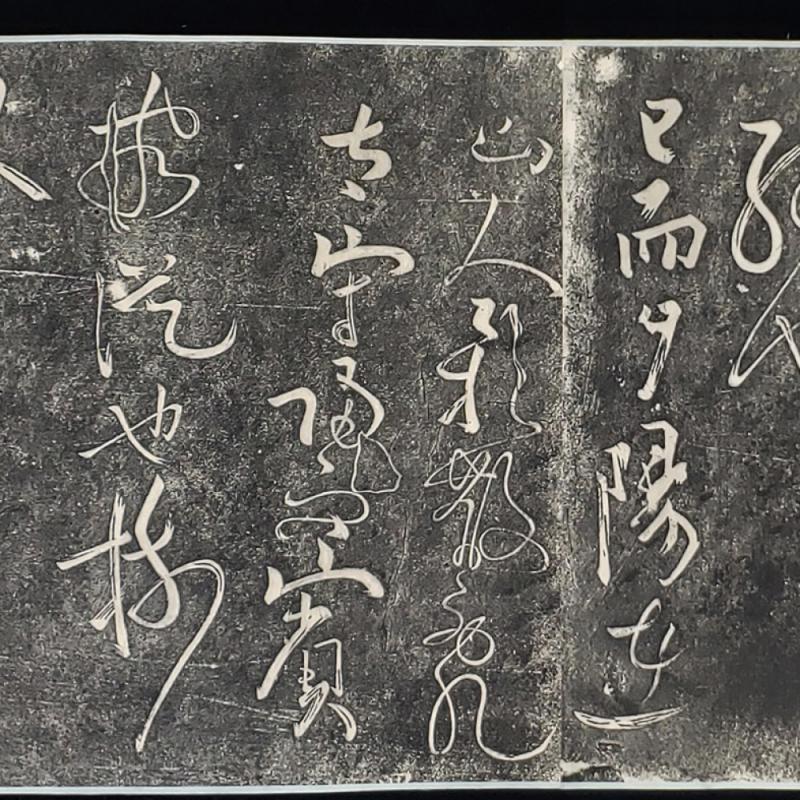 已而夕陽在
山人影散亂
太守歸而賓
客從也樹